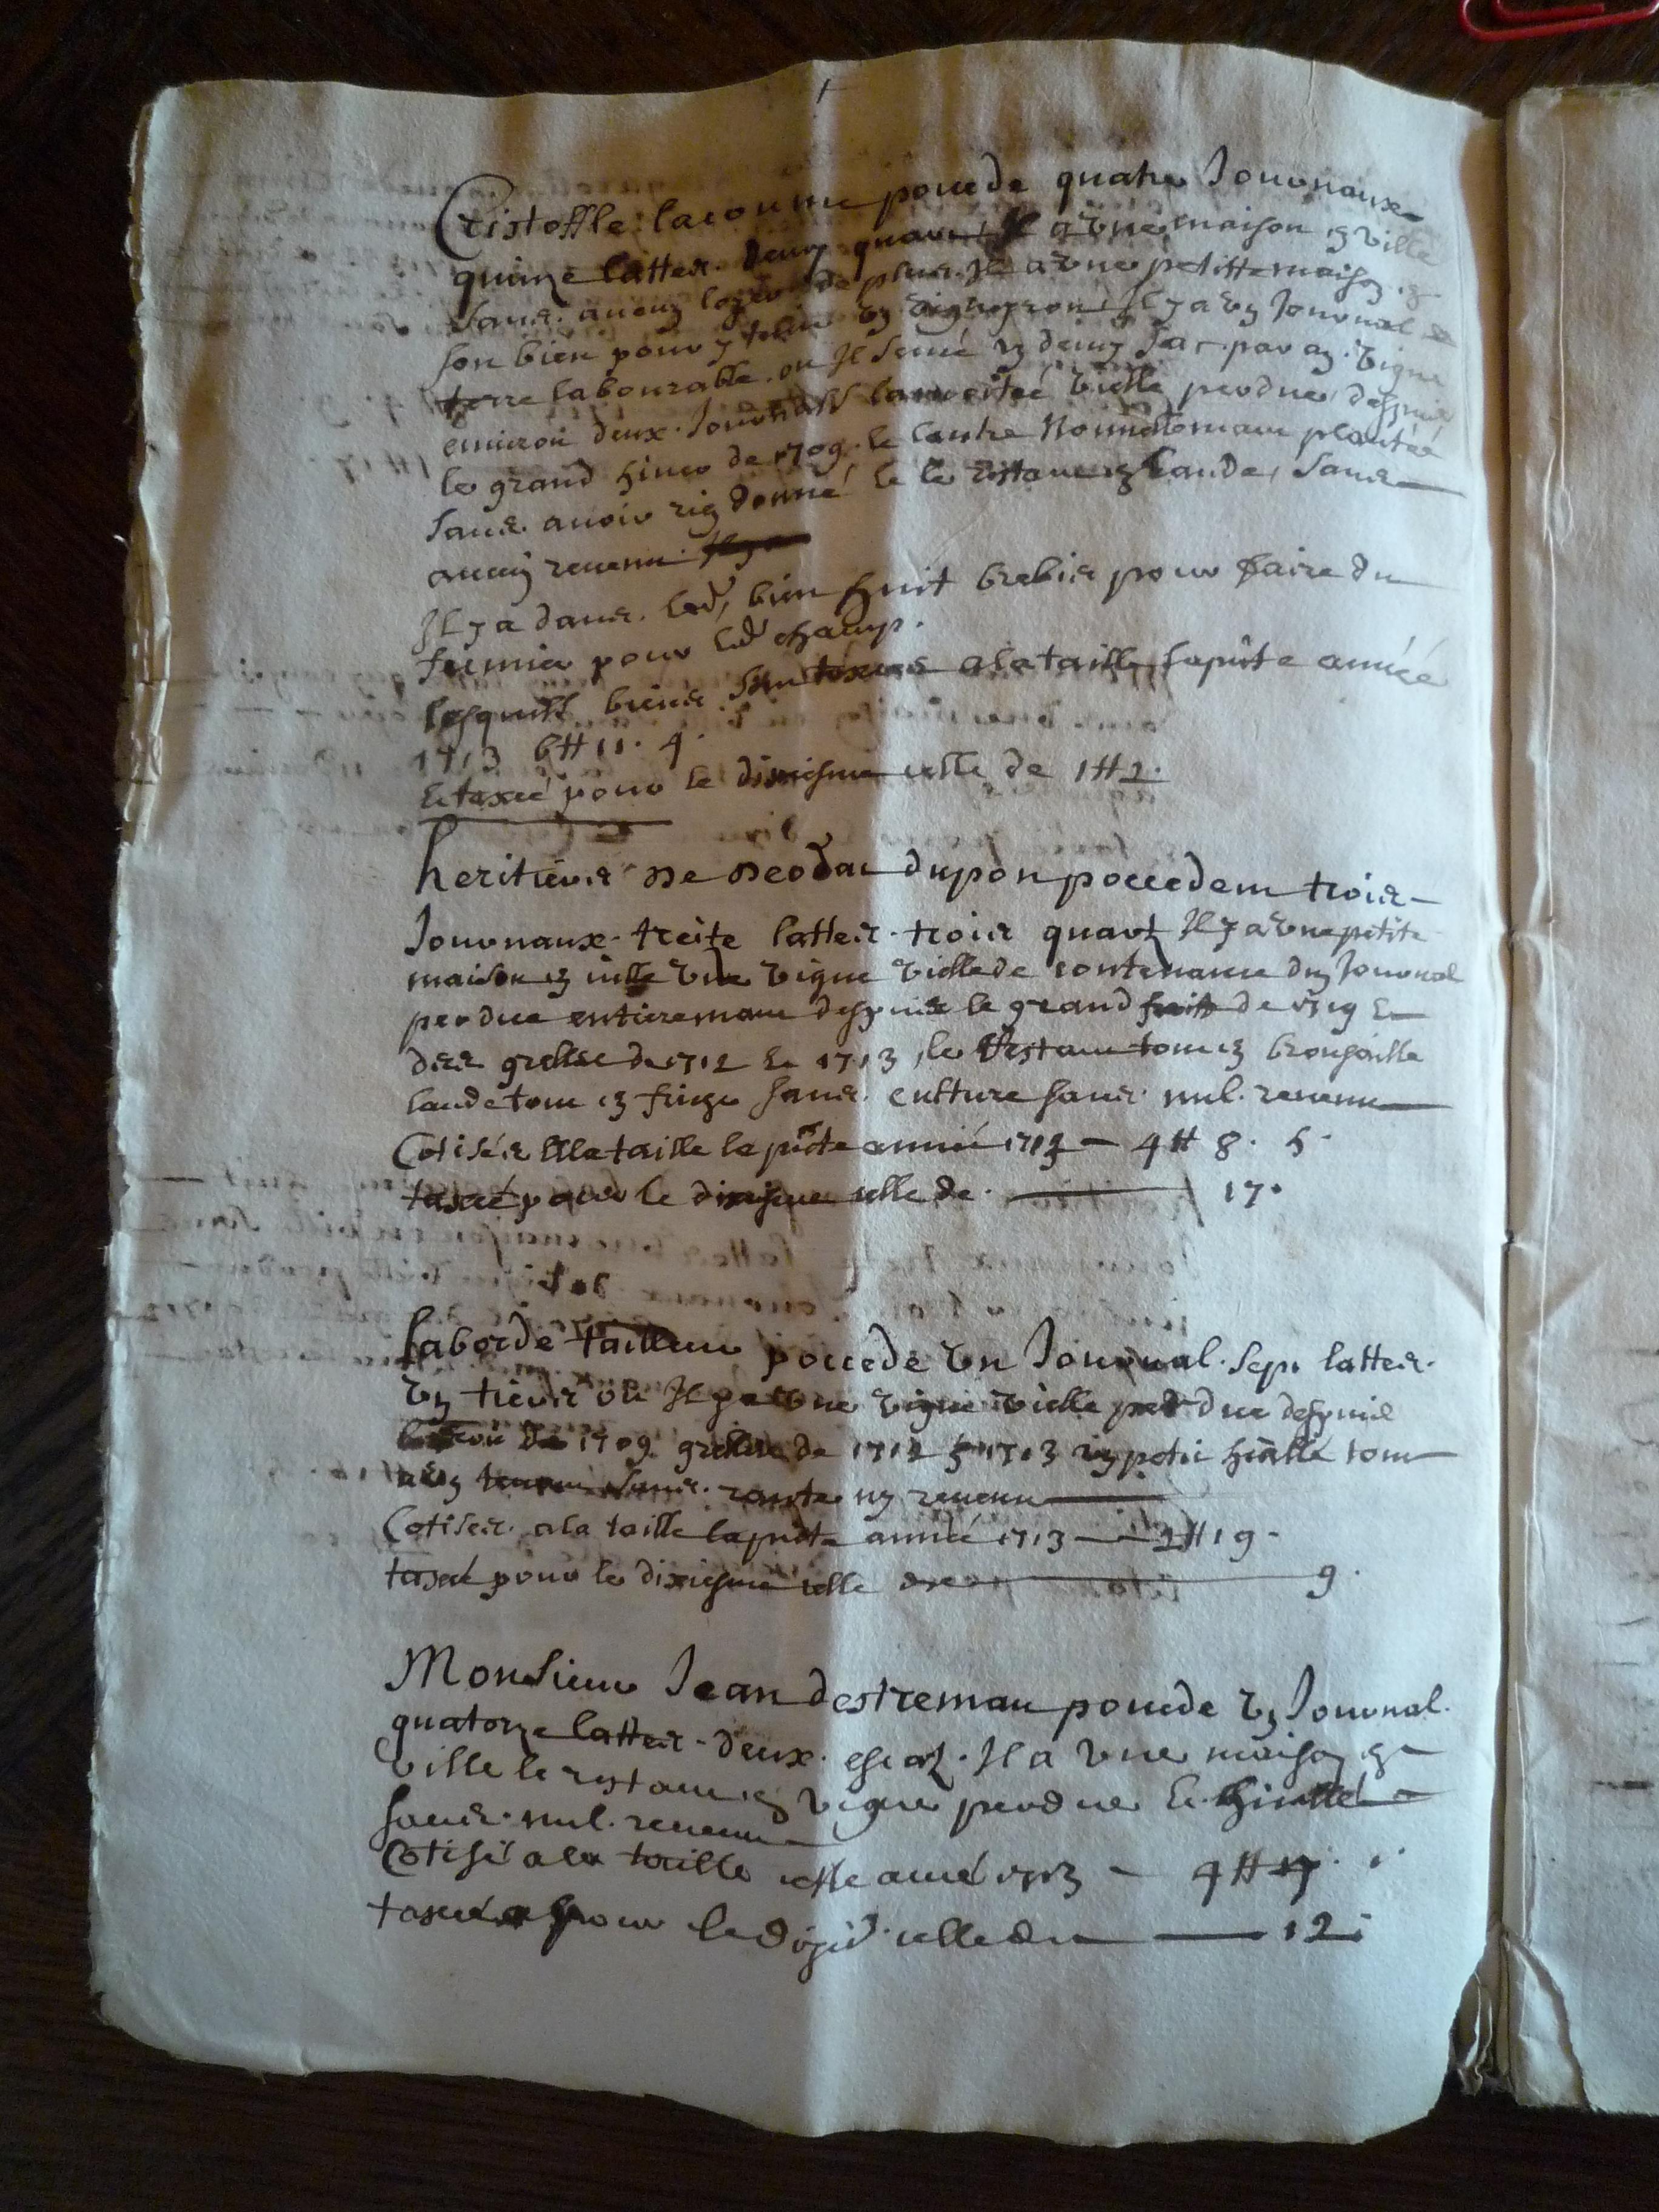 Cristoffle lacoume poucede quatre Journaux
quinze lattes deux quars Il a vne maison en ville
sans aucun loyer de plus Il a vne petitte maison en
son bien pour y tenir vn vigneron Il y a vn Journal de
terre labourable ou Il seme vn demy sac par an vigne
enuiron deux Journals la moitee vielle perdue despuis
le grand hiuer de 1709 le lautre nouuellemant plantée
sans auoir rien donné & le restant en lande sans
aucun reuenu
Il y a dans led bien huit brebis pour faire du
fumier pour led champ.
lesquels biens sont taxes a la taille la pnte année
1713 6# 11. 4.
Et taxé pour le dixiesme celle de 1# 2.
heritiers de deodat dupon poccedent trois
Journaux treite lattes trois quart Il y a vne petite
maison en ville vne vigne vielle de contenance dun Journal
perdue entieremant despuis le grand froit de 1709 &
des grelles de 1712 & 1713 le restant tout en brousaille
lande tout en friege sans culture sans nul reuenu
Cotisés a la taille la pnte année 1713 — 4# 8. 5.
taxé pour le dixiesme celle de — 17.
laborde tailleur poccede vn Journal sept lattes
vn tiers ou Il y a vne vigne vielle perdue despuis
1709 grelle de 1712 & 1713 vn petit tout
sans ny reuenu
Cotises a la taille la pnte année 1713 — 2# 19.
taxé pour le dixiesme celle de — 9.
Monsieur Jean destremau poucede vn Journal
quatorze lattes deux escatz Il a vne maison en
ville le restant en vigne perdue &
sans nul reuenu
Cotisé a la taille cette année 1713 — 4#
taxé pour le dixie celle de — 12.